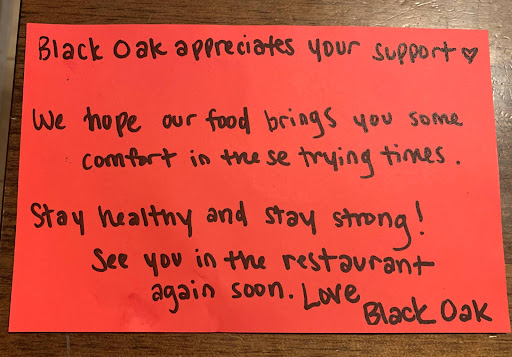 Black Oak appreciates your support ♡
We hope our food brings you some
comfort in these trying times.
Stay healthy and stay strong!
See you in the restaurant
again soon. Love
Black Oak